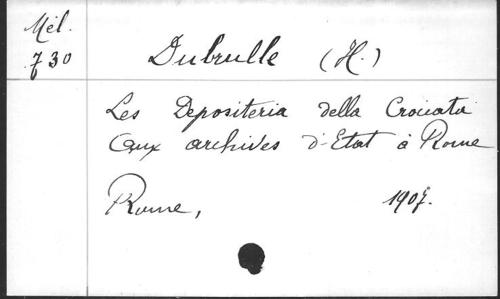 Mél.
730
Dubrulle (H.)
Les Depositeria della Crociata
aux archives d'Etat à Rome
Rome, 1907.